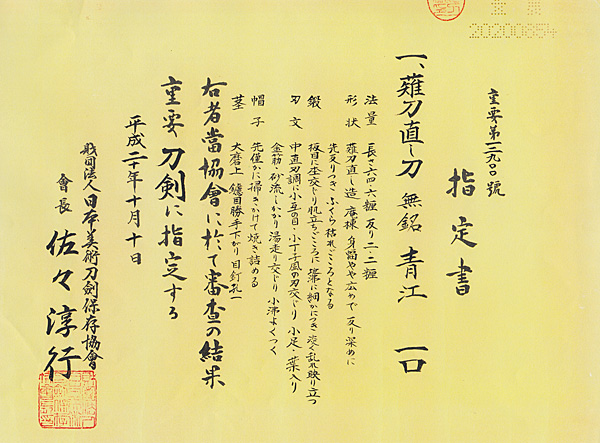 20200854
重要第一三九〇〇號
指定書
一、薙刀直し刀 無銘 青江 一口
法量 長さ六四・六糎 反り二・二糎
形状 薙刀直し造 庵棟 身幅やや広めで 反り深めに
先反りつき ふくら枯れごころとなる
鍛 板目に杢交じり 肌立ちごころに 地沸細かにつき 淡く乱れ映り立つ
刃文 中直刃調に小互の目・小丁子風の刃交じり 小足・葉入り
金筋・砂流しかかり 湯走り交じり 小沸よくつく
帽子 先僅かに掃きかけて焼き詰める
茎 大磨上 鑢目勝手下がり 目釘孔一
右者當協會に於て審査の結果
重要刀剣に指定する
平成二十年十月十日
財団法人日本美術刀剣保存協會
會長 佐々淳行